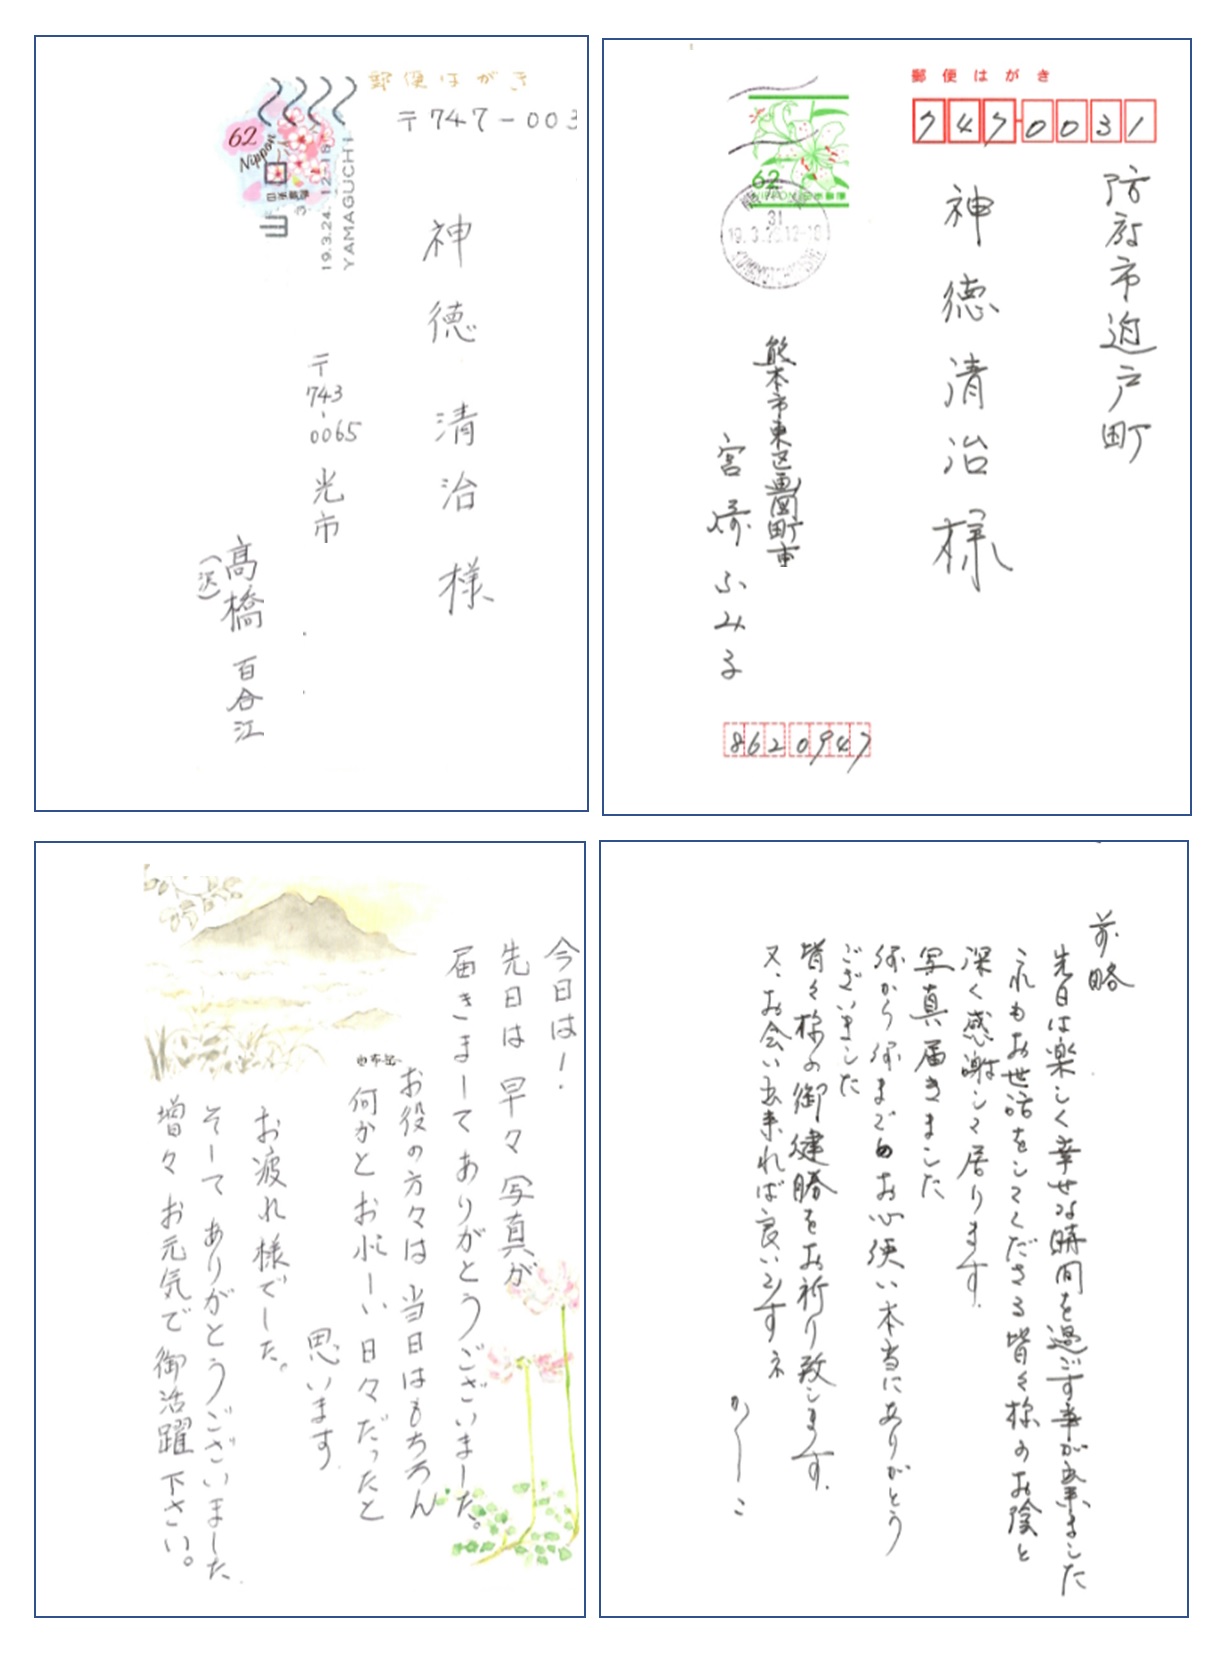 郵便はがき
〒747-003
62
Nippon
日本郵便
19.3.24. 12-18
YAMAGUCHI
神徳 清治 様
〒743-0065
光市
高橋 百合江
郵便はがき
7470031
62
NIPPON 日本郵便
31
19.3.25.12-18
防府市迫戸町
神徳清治様
熊本市東区画図町
宮﨑ふみ子
8620947
今日は!
先日は 早々 写真が
届きましてありがとうございました。
お役の方々は 当日はもちろん
何かとお忙しい日々だったと
思います。
お疲れ様でした。
そして ありがとうございました。
増々 お元気で 御活躍 下さい。
由布岳
前略
先日は楽しく幸せな時間を過ごす事が出来ました
これもお世話をしてくださる皆々様のお陰と
深く感謝して居ります。
写真届きました
何から何までもお心使い本当にありがとう
ございました
皆々様の御健勝をお祈り致します。
又、お会い出来れば良いですネ
かしこ